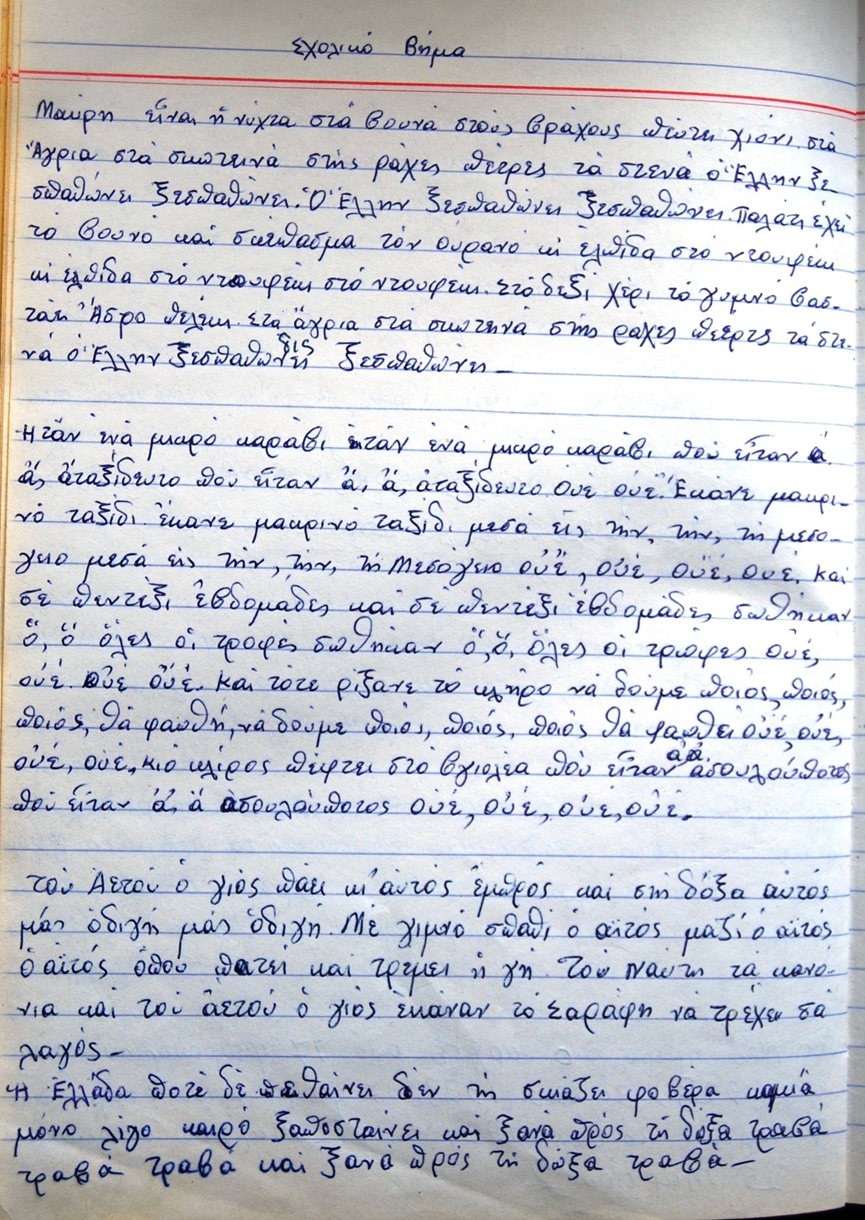 Σχολικό Βῆμα
Μαύρη εἶναι ἡ νύχτα στά βουνά στούς βράχους πέυτει χιόνι στά
Ἄγρια στά σκοτεινά στῆς ράχες πέτρες τά στενά ὁ Ἕλλην ξε
σπαθώνει ξεσπαθώνει. Ὁ Ἕλλην ξεσπαθώνει ξεσπαθώνει. Παλάτι ἔχει
τό βουνό καί σκέπασμα τόν οὐρανό κι ἐλπίδα στό ντουφέκι
κι ἐλπίδα στό ντουφέκι στό ντουφέκι. Στό δεξί χέρι τό γυμνό βασ-
τάει Ἄσρο πελέκι. Στα ἄγρια στά σκοτεινά στῆς ραχες πέτρες τά στε-
νά ὁ Ἕλλην ξεσπαθώνει ξεσπαθώνει —
Ητᾶν ἐνά μικρό καράβι ἠτάν ἐνά μικρό καράβι πού εἶταν ἀ.
ἄ, ἀταξίδευτο πού εἶταν ἄ, ἄ, ἀταξίδευτο οὐέ οὐέ. Ἔκανε μακρι-
νό ταξίδι. ἔκανε μακρινό ταξίδι μεσά εἰς τήν, τήν, τή μεσο-
γειο μεσά εἰς τήν, τήν, τή Μεσόγειο οὐέ, οὐέ, οὐέ, ουέ. Και
σέ πεντέξι ἑβδομάδες και σέ πεντέξι ἑβδομάδες σωθήκαν
ὅ, ὅ ὅλες οἱ τροφές σωθήκαν ὅ, ὅ, ὅλες οἱ τρώφες οὐέ,
οὐέ. οὐέ οὐέ. Καί τότε ρίξανε τό κλήρο νά δούμε ποιος, ποιός,
ποιός, θά φαωθῆ, νά δούμε ποιος, ποιός, ποιός θά φαωθεί οὐέ, οὐέ,
οὐέ, οὐέ, κιό κλίρος πέφτει στό βγιολέα πού εἶταν ἀ ἀ. ἀσουλούπωτος
πού εἶταν ἀ, ἀ ἀσουλούπωτος οὐέ, οὐέ, οὐέ, οὐέ.
Τού Αετού ὁ γιός πάει κι' αὐτός ἐμπρός και στή δόξα αὐτός
μᾶς ὁδιγῆ μᾶς ὁδιγῆ. Μέ γιμνό σπαθί ὁ αἰτός μαζί ὁ αἰτός
ὁ αἰτός ὁπου πατεί και τρέμει ἡ γῆ. Τού ναύτη τά κανό-
νια και του ἀετού ὁ γιός ἐκάναν τό Σαράφη νά τρέχει σά
λαγός —
Ἡ Ἑλλάδα ποτέ δέ πεθαίνει δέν τή σκιάζει φοβέρα καμιά
μόνο λίγο καιρό ξαποσταίνει και ξανά πρός τή δόξα τραβά
τραβά τραβά και ξανά πρός τή δόξα τραβά —